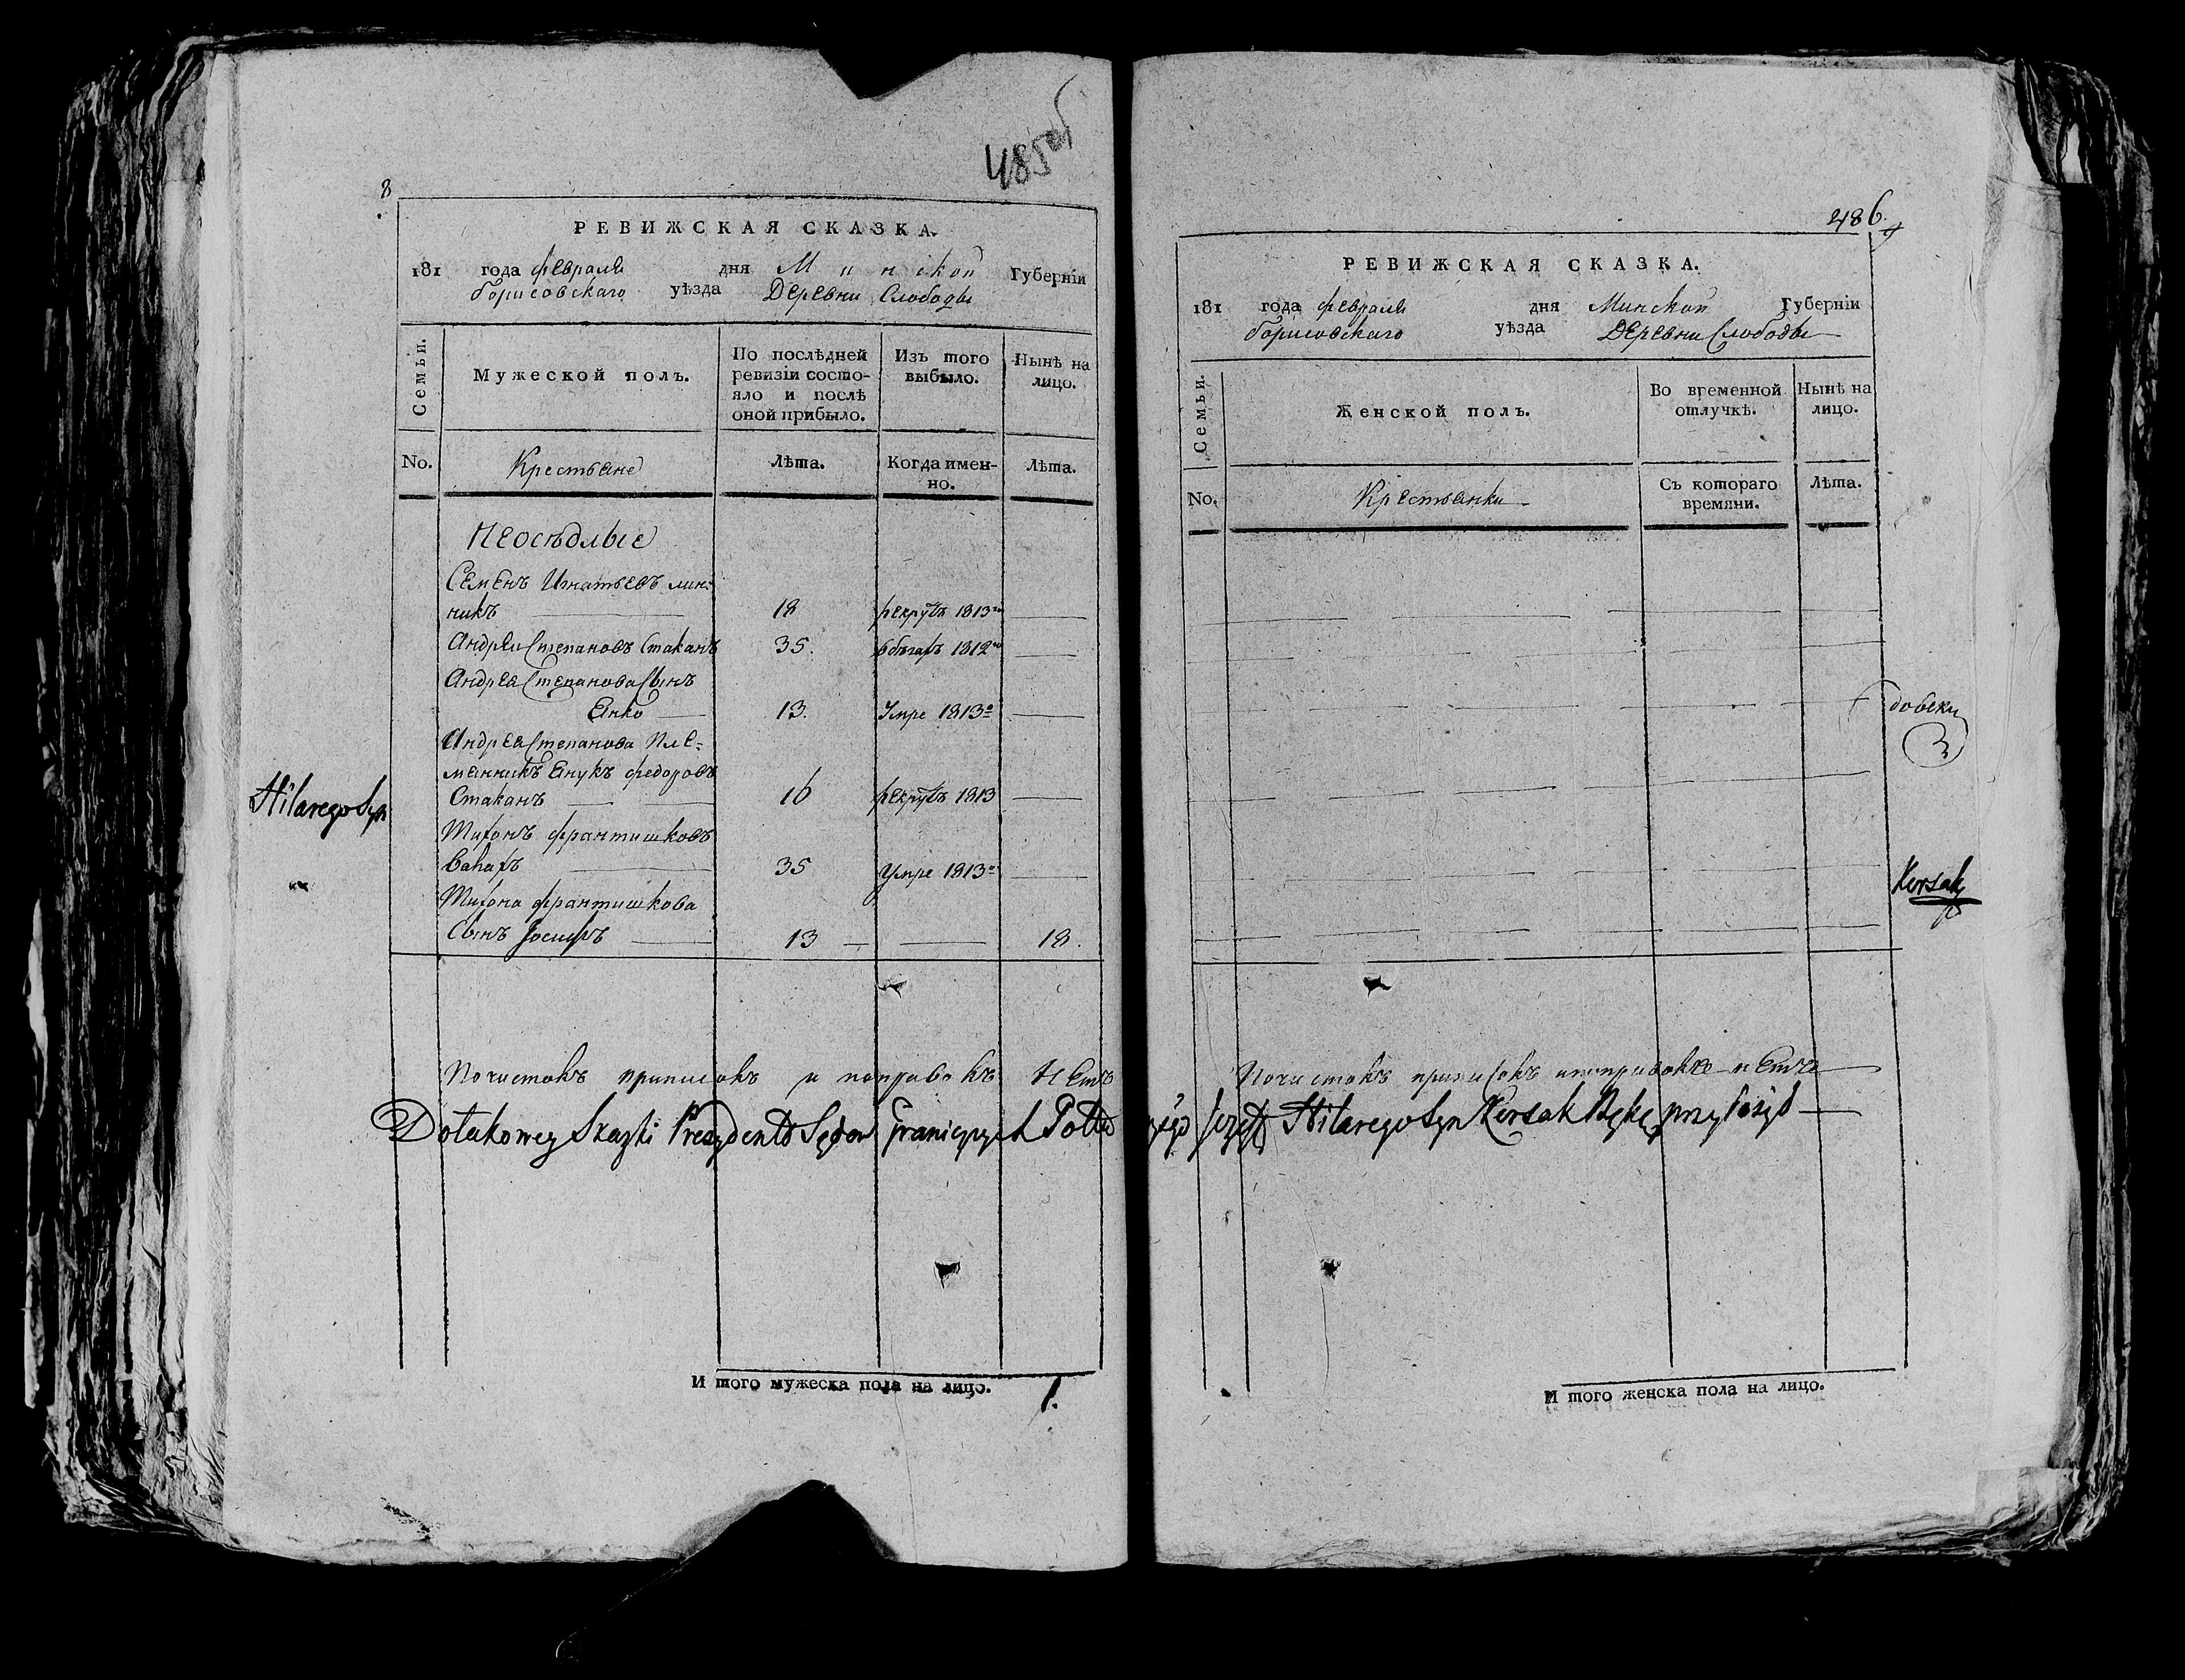 485об
8
РЕВИЖСКАЯ СКАЗКА.
181 года февраля дня Минской Губерніи
Борисовскаго уѣзда Деревни Слободы
Семьи.
Мужеской полъ.
По послѣдней ревизіи состо-
яло и послѣ оной прибыло.
Изъ того выбыло.
Нынѣ на лицо.
No.
Крестьяне
Лѣта.
Когда имен-
но.
Лѣта.
Неосѣдлые
Семенъ Игнатьевъ лин-
никъ 18 рекрутъ 1813го
Андреи Степановъ Стаканъ 35. 1812го
Андрея Степанова Сынъ
Янко 13. Умре 1813го
Андрея Степанова Пле-
менникъ Янукъ федоровъ
Стаканъ 16 рекрутъ 1813
франтишковъ
35 Умре 1813го
франтишкова
Сынъ Іосифъ 13 18.
Почистокъ приписокъ и поправокъ нетъ
Dotakowey Skazki Prezydent Sądow Granicznych
HilaregoSyn
И того мужеска пола на лицо. 1.
486
РЕВИЖСКАЯ СКАЗКА.
181 года февраля дня Минской Губерніи
Борисовскаго уѣзда Деревни Слободы
Семьи.
Женской полъ.
Во временной отлучкѣ.
Нынѣ на лицо.
No.
Крестьянки
Съ котораго времяни.
Лѣта.
Почистокъ приписокъ ипоправокъ нетъ
Józef HilaregoSyn Korsak Rękę przyłożył
Korsak
И того женска пола на лицо.